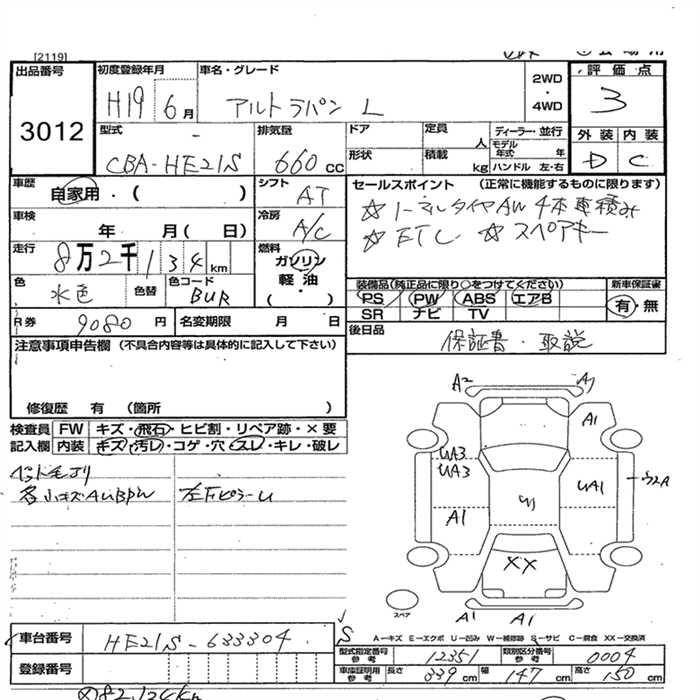 [2119]
出品番号 初度登録年月 車名・グレード 2WD・4WD 評価点
3012 H19 6月 アルトラパン L 3
型式 排気量 ドア 定員 人 ディーラー・並行 外装 内装
CBA-HE21S 660cc 形状 積載 kg モデル年式 年 ハンドル 左・右 D C
車歴 自家用・( ) シフト AT セールスポイント (正常に機能するものに限ります)
車検 年 月(日) 冷房 A/C ☆ノーマルタイヤAW 4本車積み
☆ETC ☆スペアキー
走行 8万2千134km 燃料 ガソリン 軽油 (・)
色 水色 色替 色コード BUR 装備品(純正品に限り○をつけてください) 新車保証書
PS PW ABS エアB 有・無
SR ナビ TV
R券 9080円 名変期限 月 日 後日品
保証書・取説
注意事項申告欄 (不具合内容等は具体的に記入して下さい)
修復歴 有 (箇所 )
検査員 FW キズ・飛石・ヒビ割・リペア跡・×要
記入欄 内装 キズ・汚レ・コゲ・穴・スレ・キレ・破レ
A2
A1
UA3
UA3
UA1
A1
XX
スペア
A1 A1
車台番号 HE21S-633304 S
A-キズ E-エクボ U-凹み W-補修跡 S-サビ C-腐食 XX-交換済
登録番号 型式指定番号 参考 12351 類別区分番号 参考 0004
車庫証明用 参考 長さ 339cm 幅 147cm 高さ 150cm
82,134km